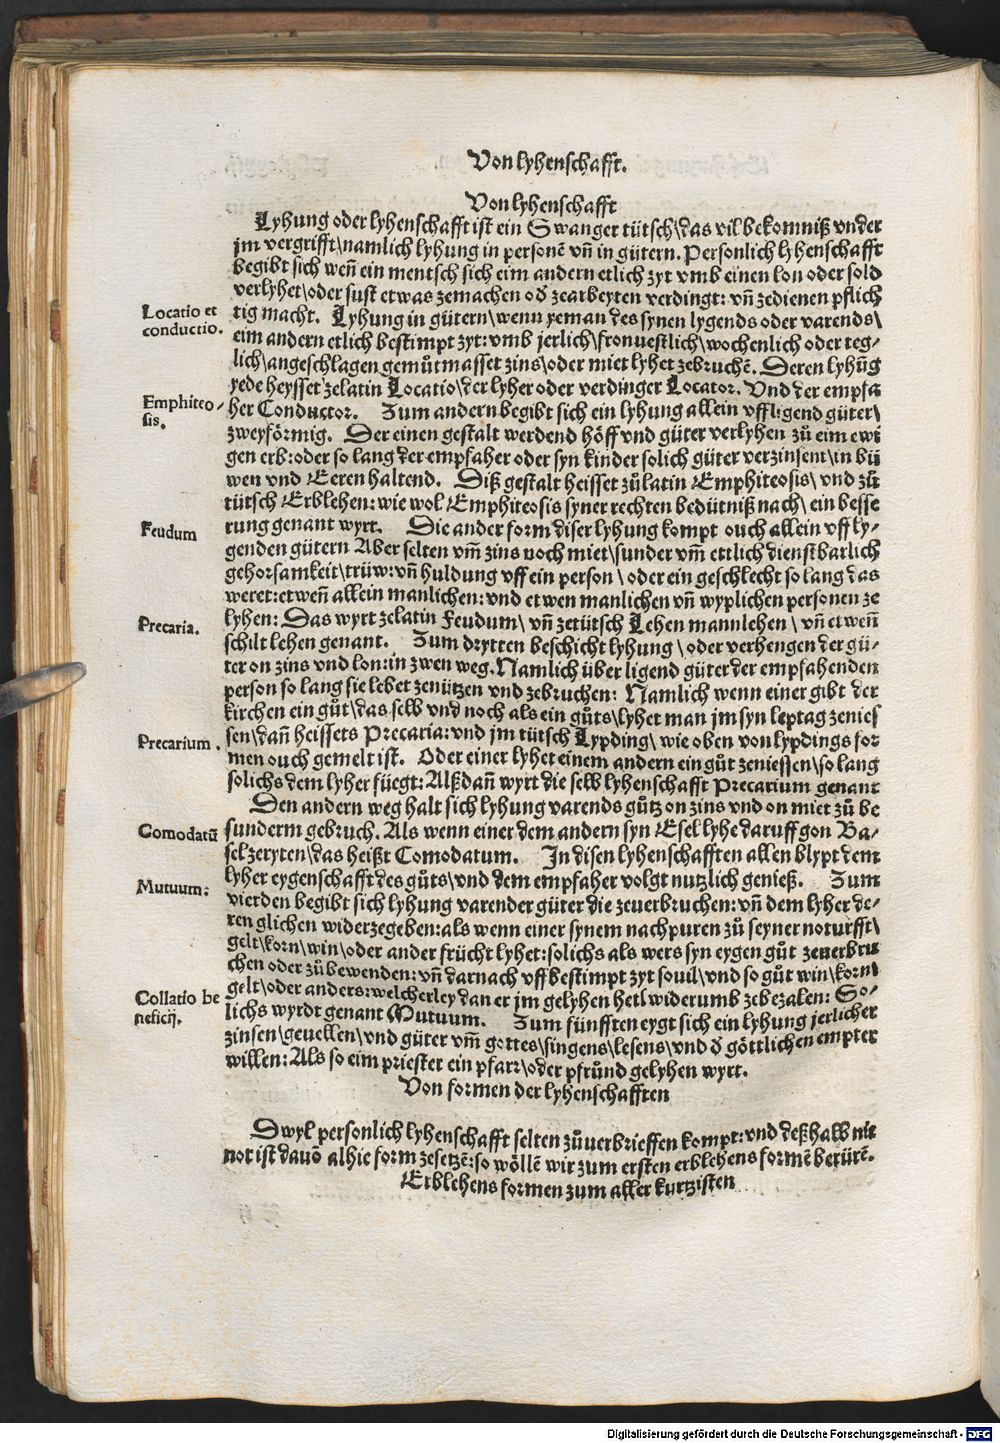 Von lyhenschafft.
Von lyhenschafft
Lyhung oder lyhenschafft ist ein Swanger tütsch\das vil bekomniß vnder
jm vergrifft\namlich lyhung in personē vñ in gütern. Personlich lyhenschafft
begibt sich weñ ein mentsch sich eim andern etlich zyt vmb einen lon oder sold
verlyhet\oder sust etwas zemachen oð zearbeyten verdingt: vñ zedienen pflich
Locatio et
conductio.
tig macht. Lyhung in gütern\wenn yeman des synen lygends oder varends\
eim andern etlich bestimpt zyt: vmb jerlich\fronuestlich\wochenlich oder teg-
lich\angeschlagen gemůtmasset zins\oder miet lyhet zebruchē. Deren lyhūg
yede heysset zelatin Locatio\der lyher oder verdinger Locator. Vnd der empfa
Emphiteo-
sis.
her Conductor. Zum andern begibt sich ein lyhung allein vff ligend güter\
zweyförmig. Der einen gestalt werdend höff vnd güter verlyhen zů eim ewi
gen erb: oder so lang der empfaher oder syn kinder solich güter verzinsent\in bü
wen vnd Eeren haltend. Diß gestalt heisset zůlatin Emphiteosis\ vnd zů
tütsch Erblehen: wie wol Emphiteosis syner rechten bedütniß nach\ ein besse
Feudum
rung genant wyrt. Die ander form diser lyhung kompt ouch allein vff ly-
genden gütern Aber selten vm̄ zins noch miet\sunder vm̄ ettlich dienstbarlich
gehorsamkeit\trüw: vñ huldung vff ein person\ oder ein geschlecht so lang das
weret: etweñ allein manlichen: vnd etwen manlichen vñ wyplichen personen ze
Precaria.
lyhen: Das wyrt zelatin Feudum\ vñ zetütsch Lehen mannlehen\ vñ etweñ
schilt lehen genant. Zum drytten beschicht lyhung\ oder verhengen der gü-
ter on zins vnd lon: in zwen weg. Namlich über ligend güter der empfahenden
person so lang sie lebet zenützen vnd zebruchen: Namlich wenn einer gibt der
kirchen ein gůt\das selb vnd noch als ein gůts\lyhet man jm syn leptag zenies
Precarium.
sen\dañ heissets Precaria: vnd jm tütsch Lypding\ wie oben von lypdings for
men ouch gemelt ist. Oder einer lyhet einem andern ein gůt zeniessen\so lang
solichs dem lyher füegt: Alßdañ wyrt die selb lyhenschafft Precarium genant
Den andern weg halt sich lyhung varends gůtz on zins vnd on miet zů be
Comodatū
sunderm gebruch. Als wenn einer dem andern syn Esel lyhe daruff gon Ba-
sel zeryten\das heißt Comodatum. In disen lyhenschafften allen blypt dem
Mutuum:
lyher eygenschafft des gůts\vnd dem empfaher volgt nutzlich genieß. Zum
vierden begibt sich lyhung varender güter die zeuerbruchen: vñ dem lyher de-
ren glichen widerzegeben: als wenn einer synem nachpuren zů seyner noturfft\
gelt\korn\win\oder ander frücht lyhet: solichs als wers syn eygen gůt zeuerbru
chen oder zůbewenden: vñ darnach vff bestimpt zyt souil\vnd so gůt win\korn\
Collatio be
neficij.
gelt\oder anders: welcherley dan er jm gelyhen hett widerumb zebezalen: So-
lichs wyrdt genant Mutuum. Zum fünfften eygt sich ein lyhung jerlicher
zinsen\geuellen\vnd güter vm̄ gottes\singens\lesens\vnd ð göttlichen empter
willen: Als so eim priester ein pfarr\oder pfrůnd gelyhen wyrt.
Von formen der lyhenschafften
Dwyl personlich lyhenschafft selten zůuerbrieffen kompt: vnd deßhalb nit
not ist dauō alhie form zesetzē: so wöllē wir zum ersten erblehens formē berürē.
Erblehens formen zum aller kurtzisten
Digitalisierung gefördert durch die Deutsche Forschungsgemeinschaft - DFG